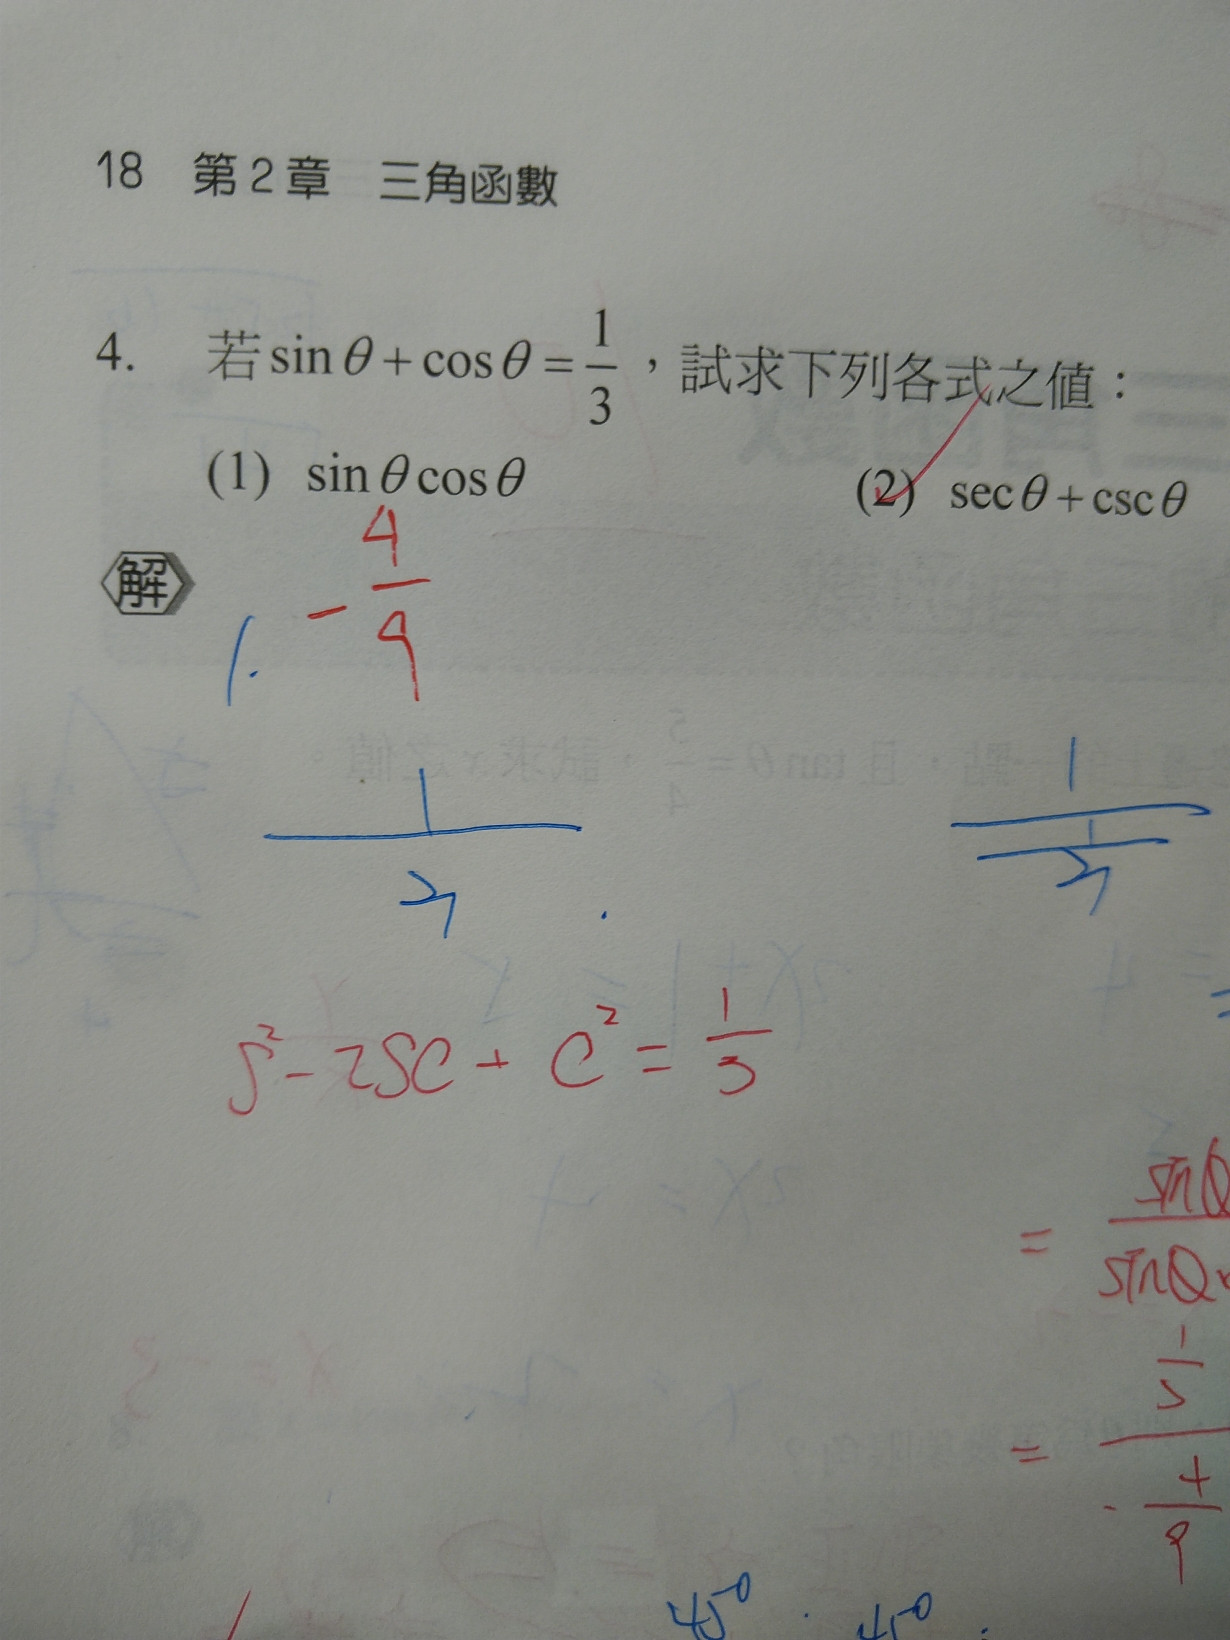 18 第2章 三角函數
4. 若 sin θ + cos θ = 1/3 ，試求下列各式之值：
(1) sin θ cos θ (2) sec θ + csc θ
解
1. - 4/9
s² - 2sc + c² = 1/3
= sinθ
sinθ
= 1/3
- 4/9
45° 45°